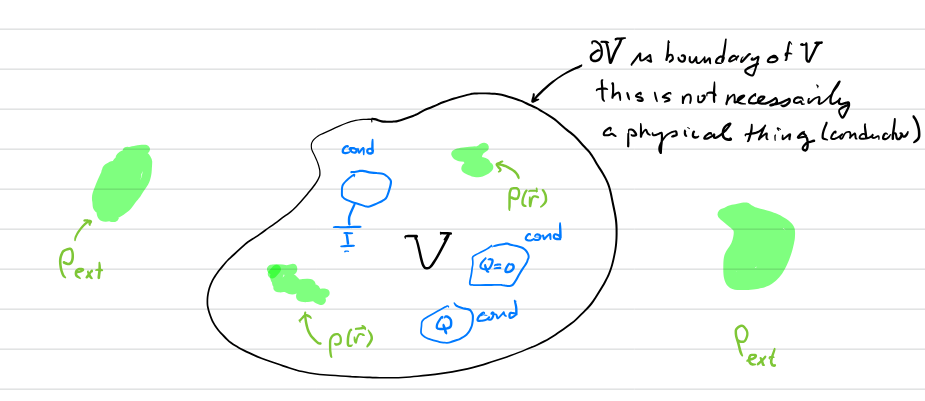 ∂V is boundary of V
this is not necessarily
a physical thing (conductor)
cond
ρ(r⃗)
ρext
V
cond
Q=0
Q
cond
ρ(r⃗)
ρext